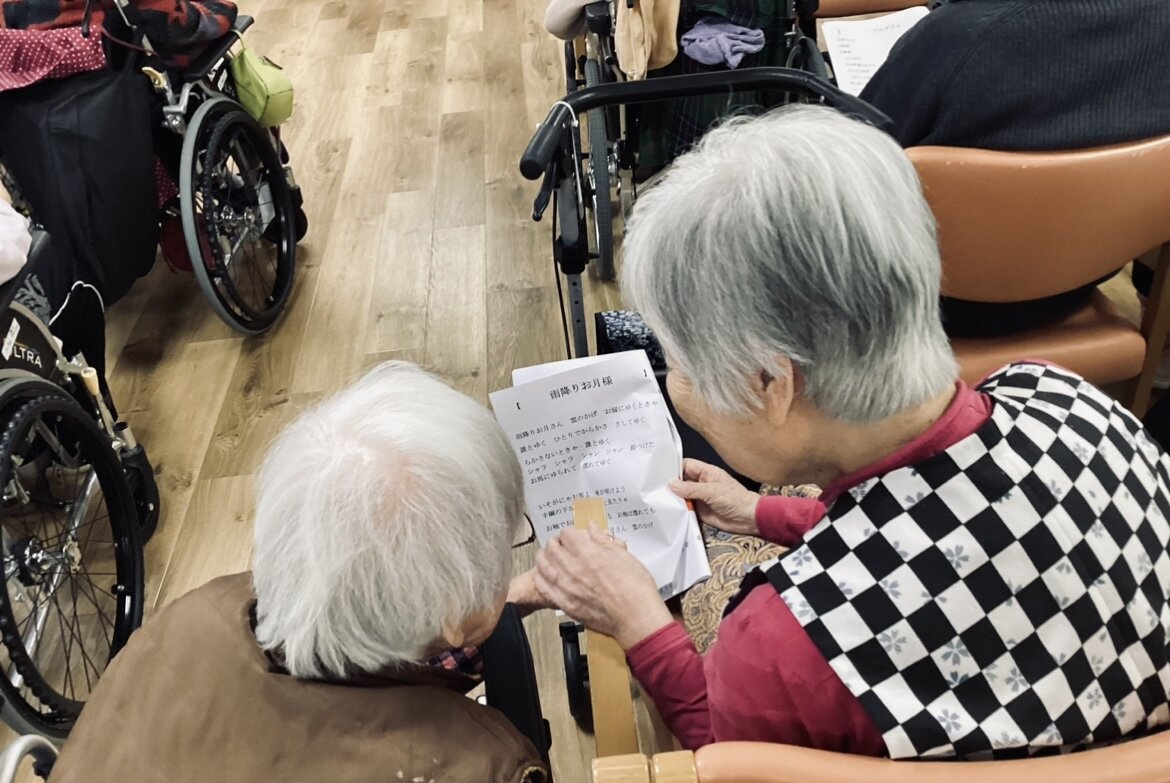 【 雨降りお月様 】
雨降りお月さん 雲のかげ お嫁にゆくときゃ
誰とゆく ひとりでからかさ さしてゆく
らかさないときゃ 誰とゆく
シャラ シャラ シャン シャン 鈴つけた
お馬にゆられて 濡れてゆく
いそがにゃお馬よ 夜が明けよう
手綱の下か 見たりゃ
お袖でお も お袖は濡れても
月さん 雲のかげ
プログラム
LTRA